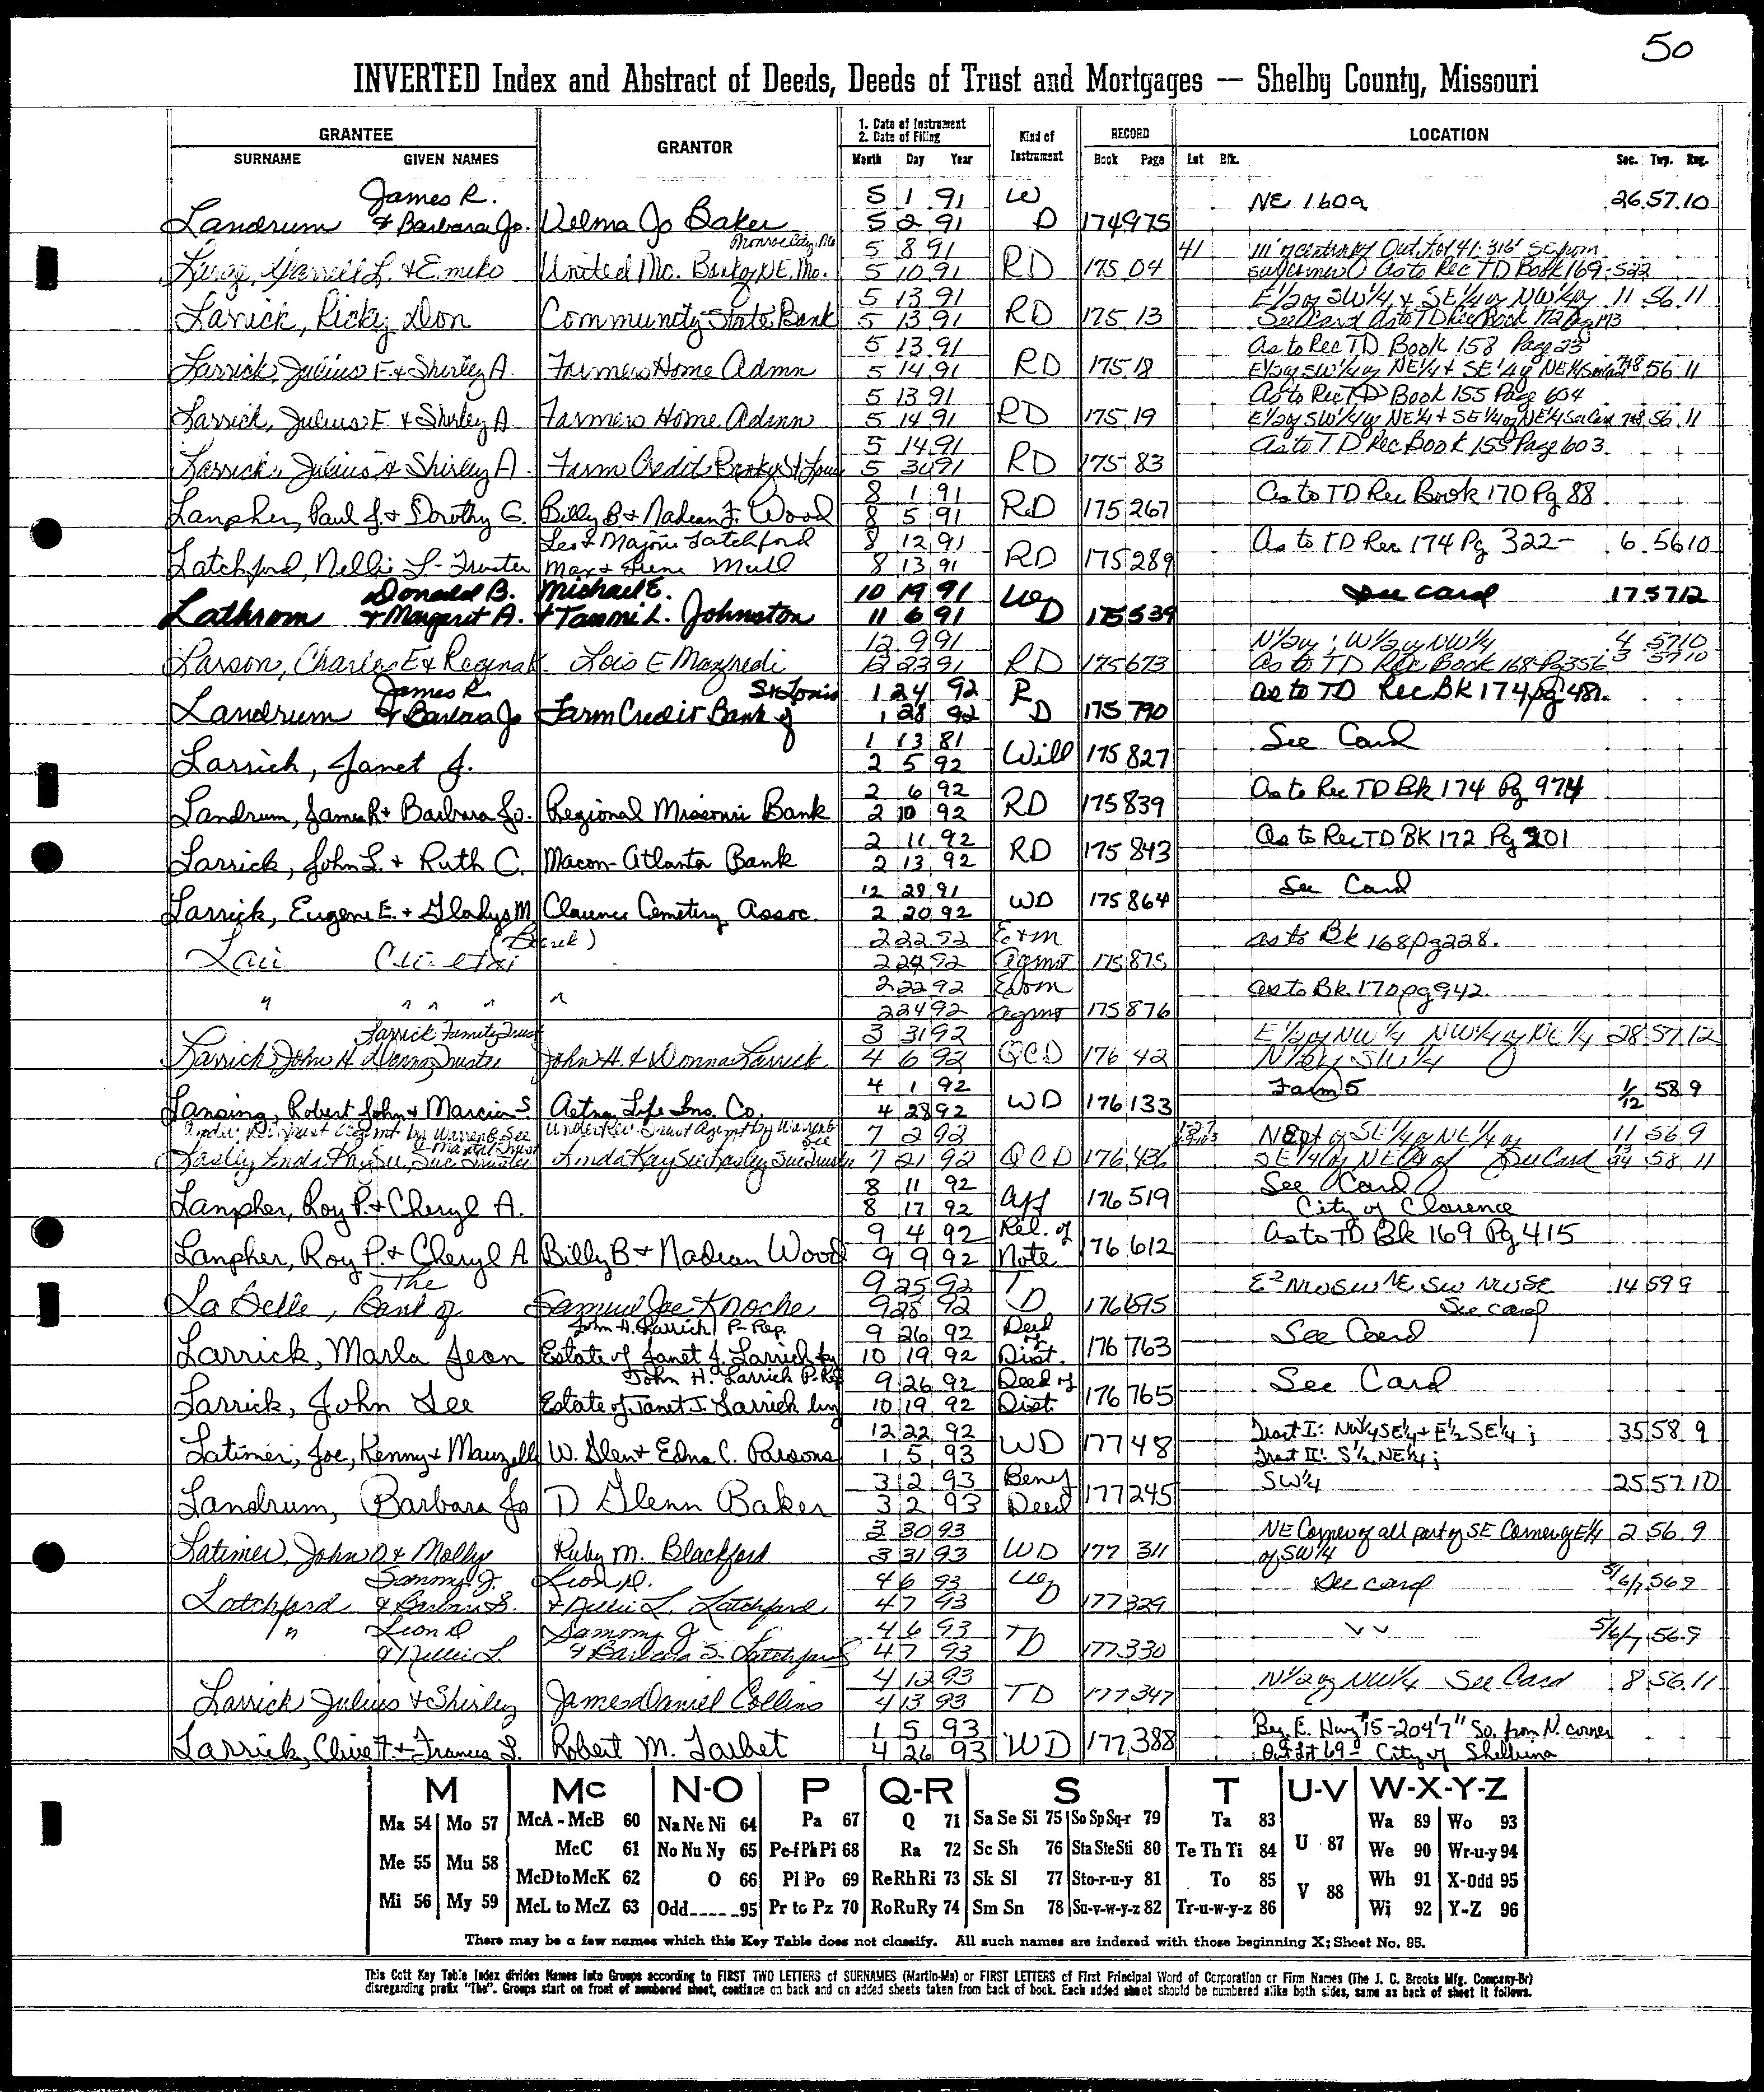 50
INVERTED Index and Abstract of Deeds, Deeds of Trust and Mortgages — Shelby County, Missouri
GRANTEE GRANTOR 1. Date of Instrument 2. Date of Filing Kind of Instrument RECORD LOCATION
SURNAME GIVEN NAMES Month Day Year Book Page Lot Blk. Sec. Twp. Rng.
James R. 5 1 91 W NE 160a 26 57 10
Landrum & Barbara Jo. Velma Jo Baker 5 2 91 D 174 975
Monroe City, Mo 5 8 91 41 Out Lot 41: 316' SE from
& Emiko United Mo. Bank of NE. Mo. 5 10 91 RD 175 04 As to Rec TD Book 169-522
5 13 91 E 1/2 of SW 1/4 & SE 1/4 of NW 1/4 of 11 56 11
Larrick, Ricky Don Community State Bank 5 13 91 RD 175 13 See Card As to TD Rec Book 172 Pg 173
5 13 91 As to Rec TD Book 158 Page 23
Larrick, Julius F. & Shirley A. Farmers Home Admn 5 14 91 RD 175 18 E 1/2 of SW 1/4 of NE 1/4 & SE 1/4 of NE 1/4 See Card 7&8 56 11
5 13 91 As to Rec TD Book 155 Page 604
Larrick, Julius F & Shirley A Farmers Home Admn 5 14 91 RD 175 19 E 1/2 of SW 1/4 of NE 1/4 & SE 1/4 of NE 1/4 See Card 7&8 56 11
5 14 91 As to TD Rec Book 155 Page 603.
Larrick, Julius & Shirley A. Farm Credit Bank of St Louis 5 30 91 RD 175 83
8 1 91 As to TD Rec Book 170 Pg 88
Lanpher, Paul J. & Dorothy G. Billy B & Nadean F. Wood 8 5 91 RD 175 267
Leo & Majorie Latchford 8 12 91 As to TD Rec 174 Pg 322- 6 56 10
Latchford, Nellie L - Trustee Max & June Mull 8 13 91 RD 175 289
Donald B. Michael E. 10 19 91 W See card 17 57 12
Lathrom & Margaret A. & Tammi L. Johnston 11 6 91 D 175 539
12 9 91 N 1/2 of; W 1/2 of NW 1/4 4 57 10
Larson, Charles E & Regina K Lois E Manfredi 12 23 91 RD 175 673 As to TD Rec Book 168-Pg 356 3 57 10
James R. St Louis 1 24 92 R as to TD Rec BK 174 pg 481.
Landrum & Barbara Jo Farm Credit Bank of 1 28 92 D 175 790
1 13 81 See Card
Larrick, Janet J. 2 5 92 Will 175 827
2 6 92 As to Rec TD Bk 174 Pg 974
Landrum, James R & Barbara Jo. Regional Missouri Bank 2 10 92 RD 175 839
2 11 92 As to Rec TD BK 172 Pg 201
Larrick, John L. & Ruth C. Macon-Atlanta Bank 2 13 92 RD 175 843
12 28 91 See Card
Larrick, Eugene E. & Gladys M Clarence Cemetery Assoc. 2 20 92 WD 175 864
2 22 92 E&M as to Bk 168 pg 228.
2 24 92 agmt 175 875
2 22 92 as to Bk. 170 pg 942.
" " " " " 2 24 92 agmt 175 876
Larrick Family Trust 3 31 92 E 1/2 of NW 1/4 NW 1/4 of NE 1/4 28 57 12
Larrick John H & Donna, Trustee John H. & Donna Larrick 4 6 92 QCD 176 42 N 1/2 of SW 1/4
4 1 92 Farm 5 1/12 58 9
Lansing, Robert John & Marcia S. Aetna Life Ins. Co. 4 28 92 WD 176 133
Under Rev Trust Agmt by Warren B See Under Rev Trust Agmt by Warren B See 7 2 92 of SE 1/4 of NE 1/4 of 11 56 9
Trustee Linda Kay See Lasley Trustee 7 21 92 QCD 176 436 SE 1/4 of NE 1/4 of See Card 58 11
8 11 92 See Card
Lanpher, Roy P. & Cheryl A. 8 17 92 Aff 176 519 City of Clarence
9 4 92 Rel. of As to TD Bk 169 Pg 415
Lanpher, Roy P. & Cheryl A Billy B. & Nadean Wood 9 9 92 Note 176 612
The 9 25 92 T E2 NWSW NE SW NWSE 14 59 9
La Belle, Bank of Samuel Joe Knoche 9 28 92 D 176 695 See card
John H. Larrick P-Rep. 9 26 92 Deed of See Card
Larrick, Marla Jean Estate of Janet J. Larrick by 10 19 92 Dist. 176 763
John H. Larrick P-Rep 9 26 92 Deed of See Card
Larrick, John Lee Estate of Janet J. Larrick by 10 19 92 Dist. 176 765
12 22 92 Tract I: NW1/4 SE1/4 & E1/2 SE1/4; 35 58 9
Latimer, Joe, Kenny & Mauzell W. Glen & Edna C. Parsons 1 5 93 WD 177 48 Tract II: S1/2 NE1/4;
3 2 93 Benef SW1/4 25 57 10
Landrum, Barbara Jo D Glenn Baker 3 2 93 Deed 177 245
3 30 93 NE Corner of all part of SE Corner of E1/2 2 56 9
Latimer, John O & Molly Ruby M. Blackford 3 31 93 WD 177 311 of SW1/4
Sammy J. Leon D. 4 6 93 W See card 5/6/7 56 9
Latchford & Barbara S. & Nellie L. Latchford 4 7 93 D 177 329
" Leon D Sammy J 4 6 93 T " " 5/6/7 56 9
& Nellie L & Barbara S. Latchford 4 7 93 D 177 330
4 12 93 N 1/2 of NW 1/4 See Card 8 56 11
Larrick Julius & Shirley James Daniel Collins 4 13 93 TD 177 347
1 5 93 Beg. E. Hwy #15-204'7" So. from N. corner
Larrick, Clive F. & Frances L. Robert M. Tarbet 4 26 93 WD 177 388 Out Lot 69 - City of Shelbina
M Mc N-O P Q-R S T U-V W-X-Y-Z
Ma 54 Mo 57 McA - McB 60 Na Ne Ni 64 Pa 67 Q 71 Sa Se Si 75 So Sp Sq-r 79 Ta 83 Wa 89 Wo 93
Me 55 Mu 58 McC 61 No Nu Ny 65 Pe-f Ph Pi 68 Ra 72 Sc Sh 76 Sta Ste Sti 80 Te Th Ti 84 U 87 We 90 Wr-u-y 94
McD to McK 62 O 66 Pl Po 69 Re Rh Ri 73 Sk Sl 77 Sto-r-u-y 81 To 85 V 88 Wh 91 X-Odd 95
Mi 56 My 59 McL to McZ 63 Odd-----95 Pr to Pz 70 Ro Ru Ry 74 Sm Sn 78 Su-v-w-y-z 82 Tr-u-w-y-z 86 Wi 92 Y-Z 96
There may be a few names which this Key Table does not classify. All such names are indexed with those beginning X; Sheet No. 95.
This Cott Key Table Index divides Names into Groups according to FIRST TWO LETTERS of SURNAMES (Martin-Ma) or FIRST LETTERS of First Principal Word of Corporation or Firm Names (The J. C. Brooks Mfg. Company-Br)
disregarding prefix "The". Groups start on front of numbered sheet, continue on back and on added sheets taken from back of book. Each added sheet should be numbered alike both sides, same as back of sheet it follows.